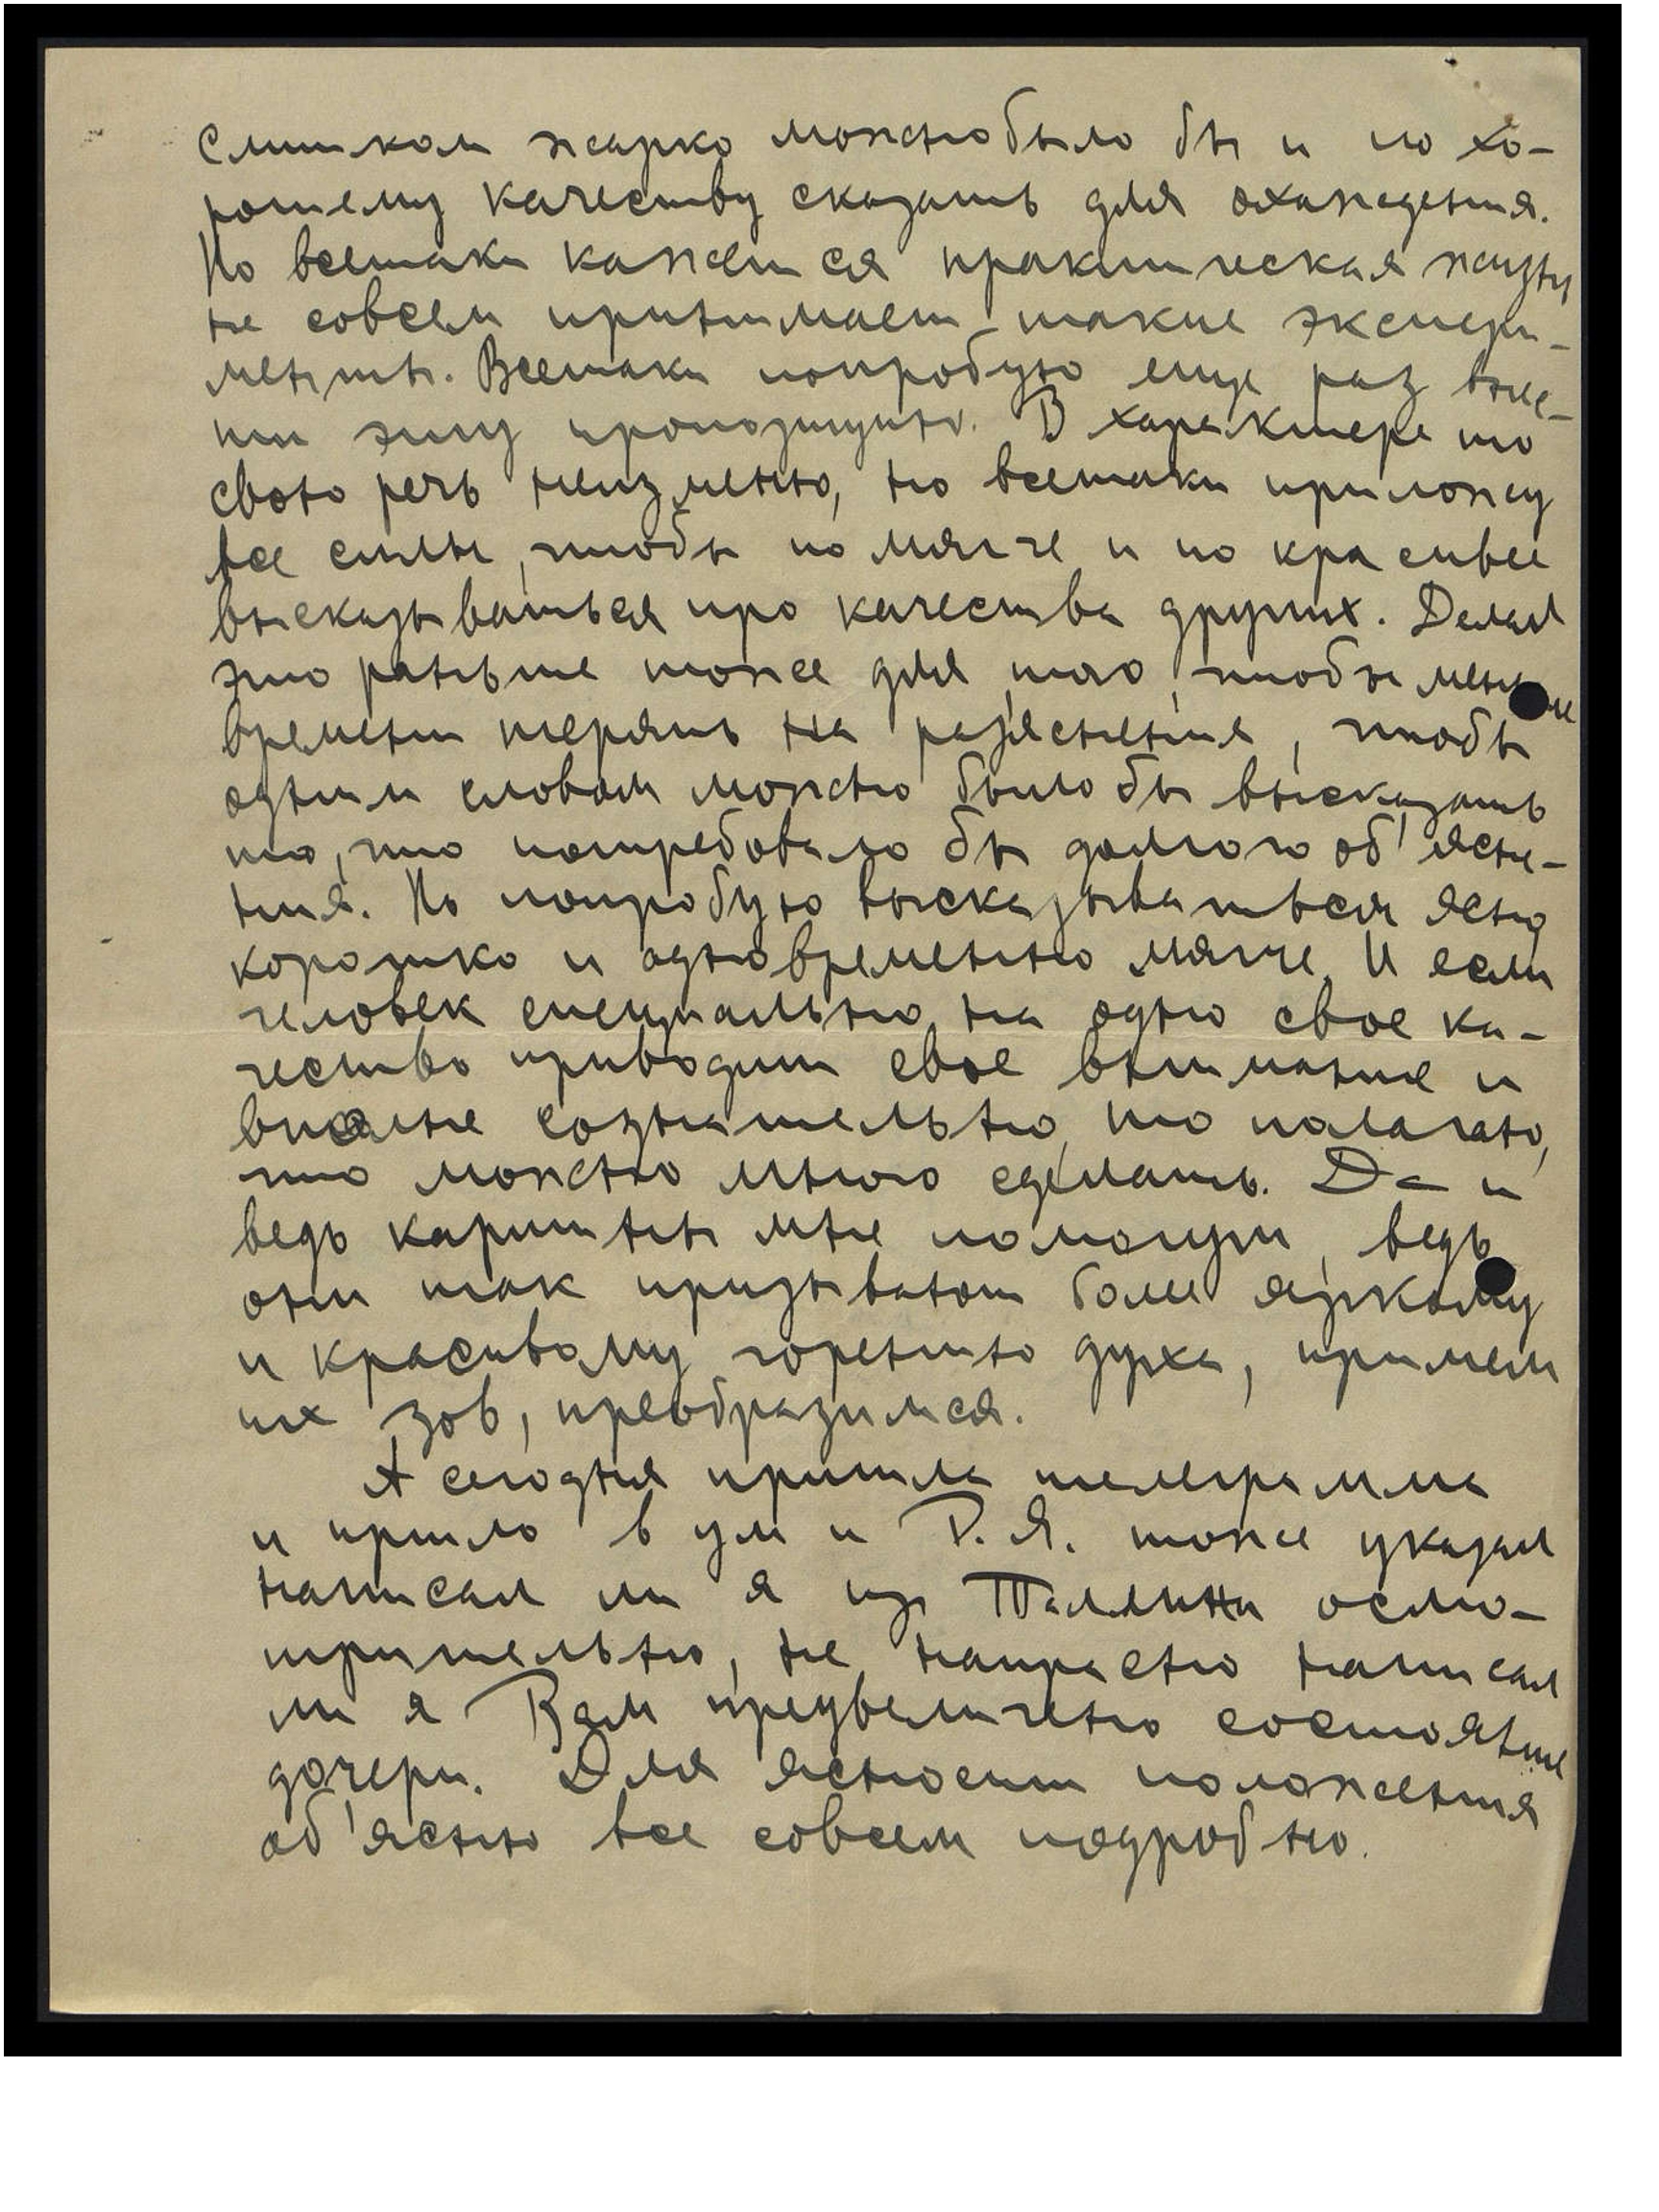 Слишком жарко можно было бы и по хо-
рошему качеству сказать для охлаждения.
Но всетаки кажется практическая жизнь
не совсем принимает такие экспери-
менты. Всетаки попробую еще раз внес-
ти эту пропозицию. В характере то
свою речь неизменно, но всетаки приложу
все силы, чтобы по мягче и по красивее
высказываться про качества других. Делал
это раньше тоже для того, чтобы меньше
времени терять на раз'яснения, чтобы
одним словом можно было бы высказать
то, что потребовало бы долгого об'ясне-
ния. Но попробую высказываться ясно
коротко и одновременно мягче. И если
человек специально на одно свое ка-
чество приводит свое внимание и
вполне сознательно, то полагаю,
что можно много сделать. Да и
ведь картины мне помогут, ведь
они так призывают более яркому
и красивому горению духа, примем
их зов, преобразимся.
А сегодня пришла телеграмма
и пришло в ум и Р. Я. тоже указал
написал ли я из Таллина осмо-
трительно, не напрасно написал
ли я Вам преувеличено состояние
дочери. Для ясности положения
об'ясню все совсем подробно.